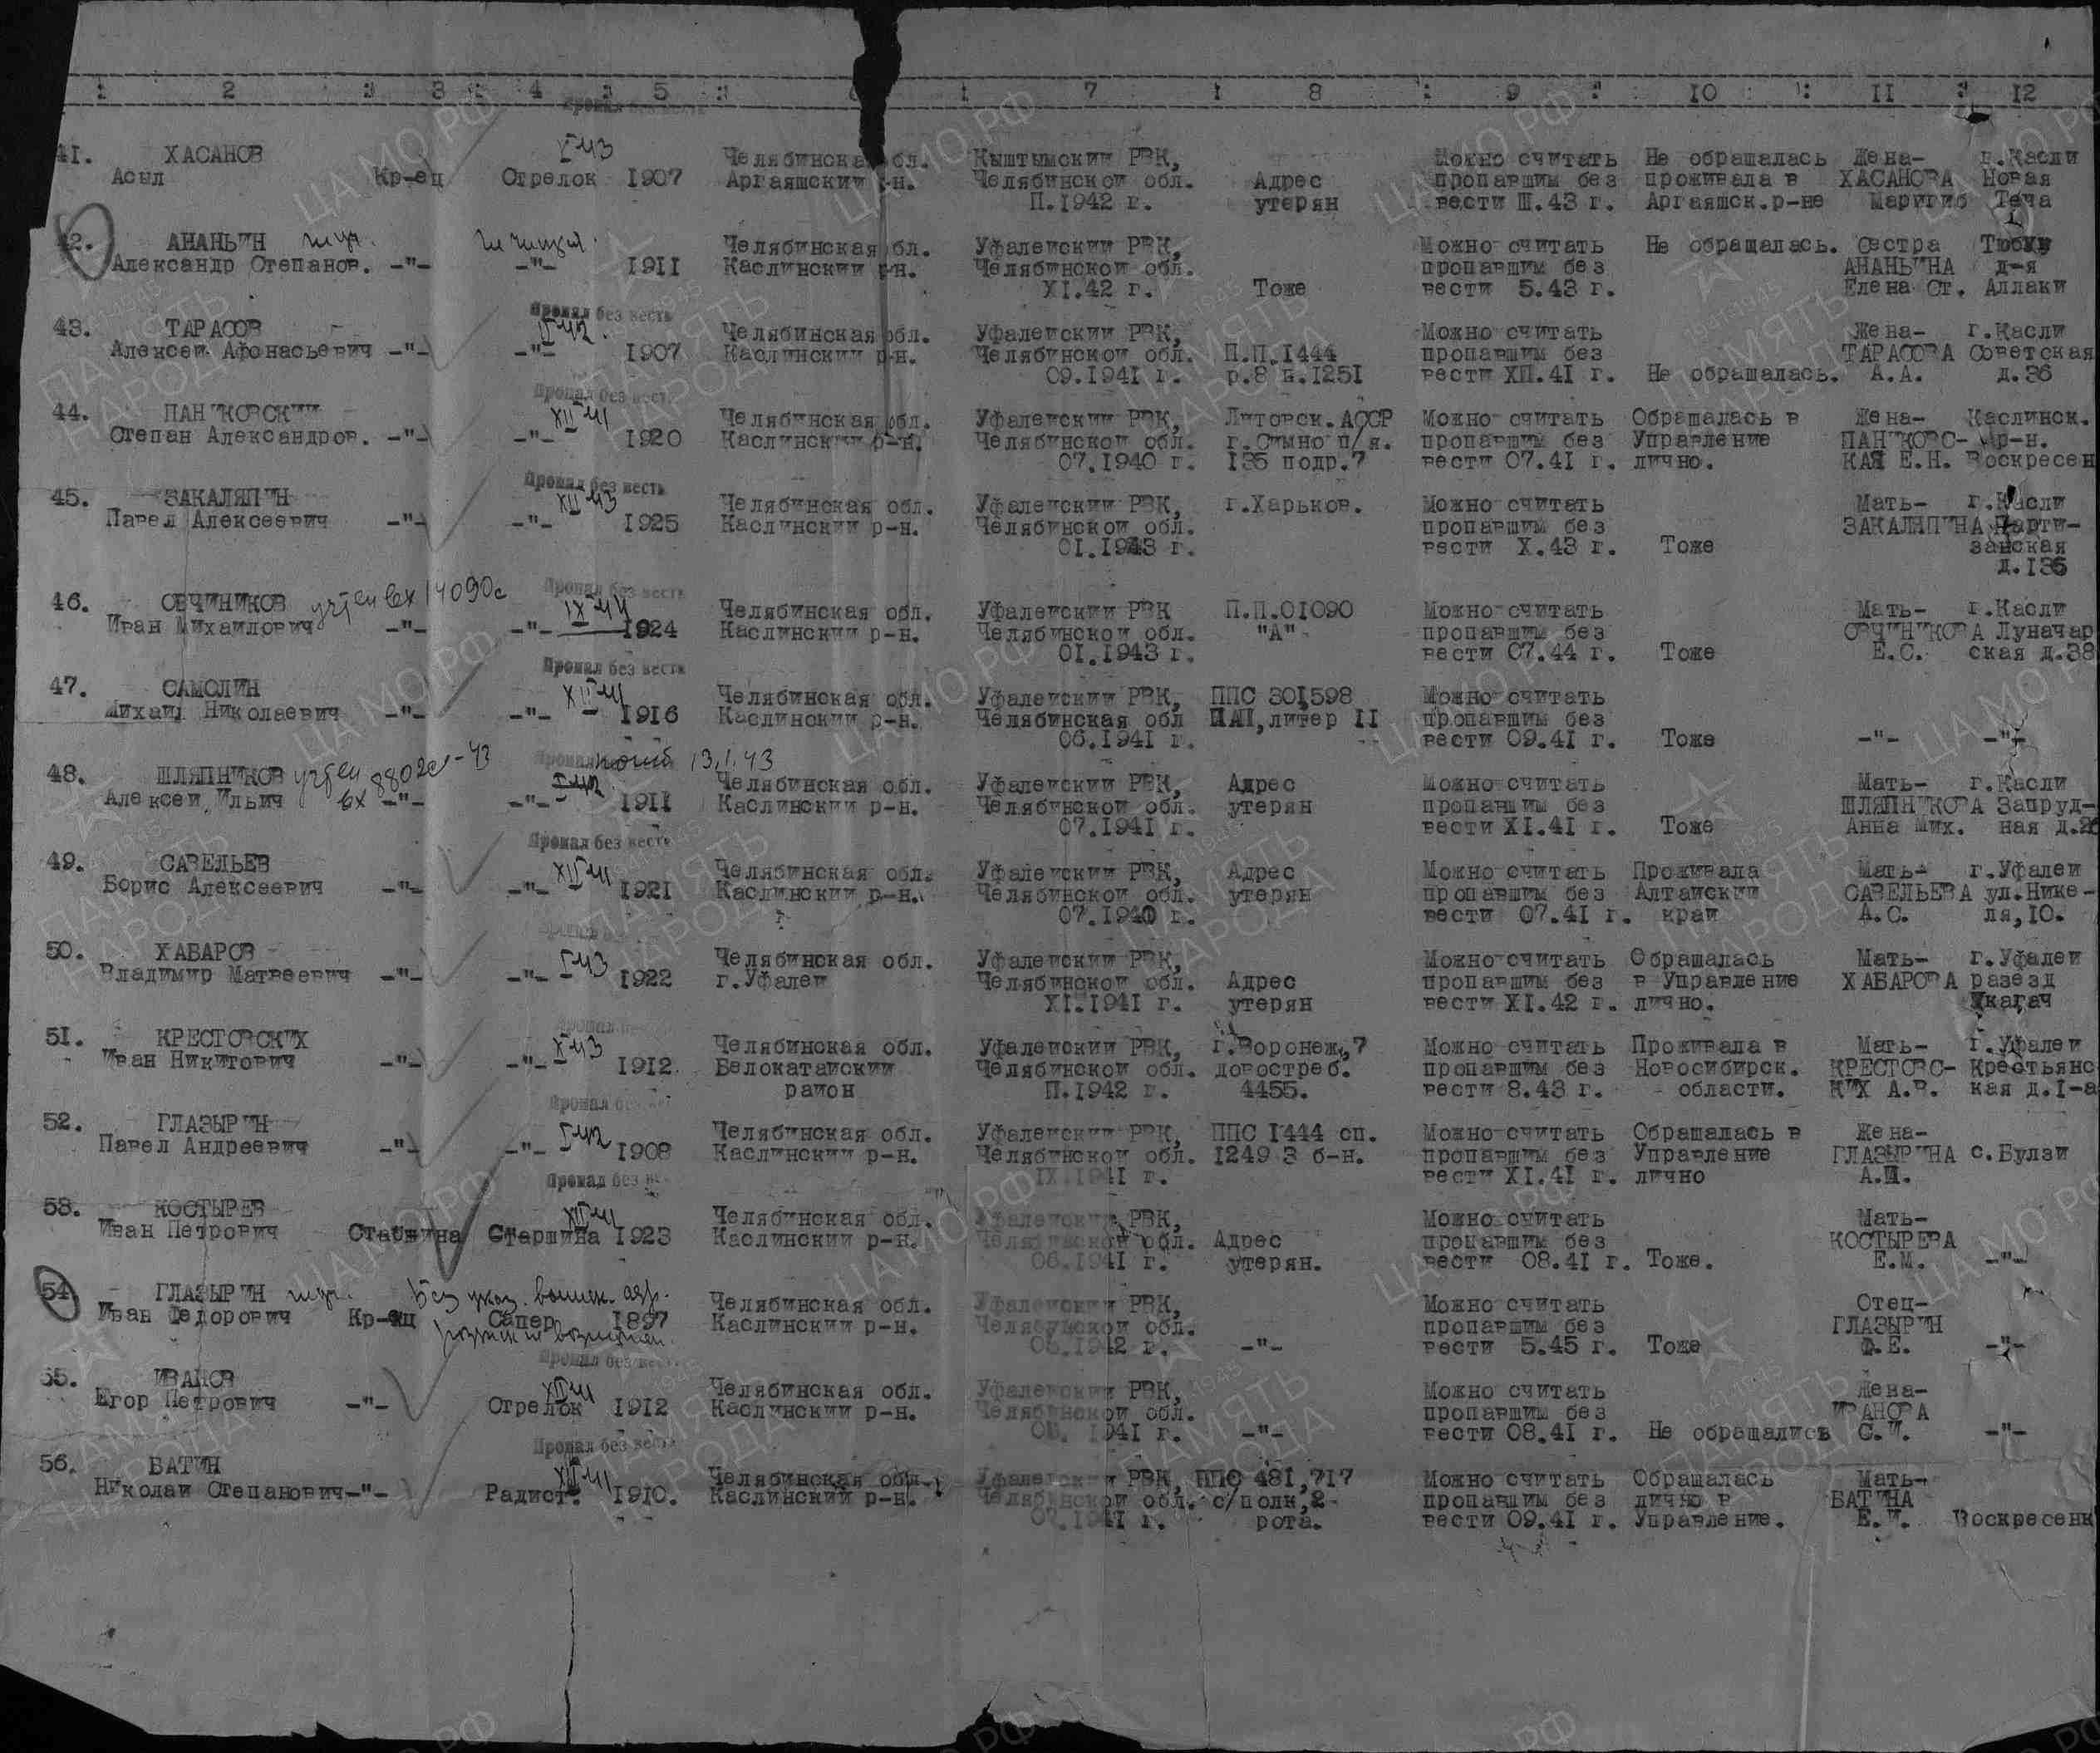 1 2 3 4 5 7 8 9 10 11 12
41. ХАСАНОВ Челябинская обл. Кыштымский РВК, Можно считать Не обращалась Жена- г.Касли
Асыл Кр-ец Стрелок 1907 Аргаяшский р-н. Челябинской обл. Адрес пропавшим без проживала в ХАСАНОВА Новая
П.1942 г. утерян вести Ш.43 г. Аргаяшск.р-не Маригиб Теча
42. АНАНЬИН Челябинская обл. Уфалейский РВК, Можно считать Не обращалась. Сестра Тюбук
Александр Степанов. -"- -"- 1911 Каслинский р-н. Челябинской обл. пропавшим без АНАНЬИНА д-я
XI.42 г. Тоже вести 5.43 г. Елена Ст. Аллаки
Пропал без вести
43. ТАРАСОВ Челябинская обл. Уфалейский РВК, Можно считать Жена- г.Касли
Алексей Афонасьевич -"- -"- 1907 Каслинский р-н. Челябинской обл. П.П.1444 пропавшим без ТАРАСОВА Советская
09.1941 г. р.8 п.1251 вести ХП.41 г. Не обращалась. А.А. д.36
Пропал без вести
44. ПАНИКОВСКИЙ XII 41 Челябинская обл. Уфалейский РВК, Литовск.АССР Можно считать Обращалась в Жена- Каслинск.
Степан Александров. -"- -"- 1920 Каслинский р-н. Челябинской обл. г.Симно п/я. пропавшим без Управление ПАНИКОВС- р-н.
07.1940 г. 135 подр.7 вести 07.41 г. лично. КАЯ Е.Н. Воскресен
Пропал без вести
45. ЗАКАЛЯПИН XII 43 Челябинская обл. Уфалейский РВК, г.Харьков. Можно считать Мать- г.Касли
Павел Алексеевич -"- -"- 1925 Каслинский р-н. Челябинской обл. пропавшим без ЗАКАЛЯПИНА Парти-
01.1943 г. вести X.43 г. Тоже занская
д.136
Пропал без вести
46. ОВЧИНИКОВ учтен вх 14090с IX 44 Челябинская обл. Уфалейский РВК П.П.01090 Можно считать Мать- г.Касли
Иван Михайлович -"- -"- 1924 Каслинский р-н. Челябинской обл. "А" пропавшим без ОВЧИНИКОВА Луначар
01.1943 г. вести 07.44 г. Тоже Е.С. ская д.38
Пропал без вести
47. САМОЛИН XII 41 Челябинская обл. Уфалейский РВК, ППС 301,598 Можно считать Мать-
Михаил Николаевич -"- -"- 1916 Каслинский р-н. Челябинская обл ПАП,литер II пропавшим без
06.1941 г. вести 09.41 г. Тоже -"- -"-
Пропал погиб 13.1.43
48. ШЛЯПНИКОВ учтен Челябинская обл. Уфалейский РВК, Адрес Можно считать Мать- г.Касли
Алексей Ильич вх -"- -"- 1911 Каслинский р-н. Челябинской обл. утерян пропавшим без ШЛЯПНИКОВА Запруд-
07.1941 г. вести XI.41 г. Тоже Анна Мих. ная д.26
Пропал без вести
49. САВЕЛЬЕВ XII 41 Челябинская обл. Уфалейский РВК, Адрес Можно считать Проживала Мать- г.Уфалей
Борис Алексеевич -"- -"- 1921 Каслинский р-н. Челябинской обл. утерян пропавшим без Алтайский САВЕЛЬЕВА ул.Нике-
07.1940 г. вести 07.41 г. край А.С. ля,10.
50. ХАБАРОВ Челябинская обл. Уфалейский РВК, Можно считать Обращалась Мать- г.Уфалей
Владимир Матвеевич -"- -"- I 43 1922 г.Уфалей Челябинской обл. Адрес пропавшим без в Управление ХАБАРОВА разезд
XI.1941 г. утерян вести XI.42 г. лично.
51. КРЕСТОВСКИХ X 43 Челябинская обл. Уфалейский РВК, г.Воронеж,7 Можно считать Проживала в Мать- г.Уфалей
Иван Никитович -"- -"- 1912. Белокатайский Челябинской обл. довостреб. пропавшим без Новосибирск. КРЕСТОВС- Крестьянс
район П.1942 г. 4455. вести 8.43 г. области. КИХ А.В. кая д.1-а
52. ГЛАЗЫРИН Челябинская обл. Уфалейский РВК, ППС 1444 сп. Можно считать Обращалась в Жена-
Павел Андреевич -"- -"- I 42 1908 Каслинский р-н. Челябинской обл. 1249 3 б-н. пропавшим без Управление ГЛАЗЫРИНА с.Булзи
IX.1941 г. вести XI.41 г. лично
Пропал без
53. КОСТЫРЕВ XII 41 Челябинская обл. Уфалейский РВК, Можно считать Мать-
Иван Петрович Старшина Старшина 1923 Каслинский р-н. Челябинской обл. Адрес пропавшим без КОСТЫРЕВА
06.1941 г. утерян. вести 08.41 г. Тоже. Е.М. -"-
54. ГЛАЗЫРИН Челябинская обл. Уфалейский РВК, Можно считать Отец-
Иван Федорович Кр-ец Сапер 1897 Каслинский р-н. Челябинской обл. пропавшим без ГЛАЗЫРИН
1942 г. -"- вести 5.45 г. Тоже Ф.Е. -"-
Пропал без вести
55. ИВАНОВ XII 41 Челябинская обл. Уфалейский РВК, Можно считать Жена-
Егор Петрович -"- Стрелок 1912 Каслинский р-н. Челябинской обл. пропавшим без ИВАНОВА
1941 г. -"- вести 08.41 г. Не обращались С.И. -"-
Пропал без вести
56. БАТИН XII 41 Челябинская обл. Уфалейский РВК, ППС 481,717 Можно считать Обращалась Мать-
Николай Степанович-"- Радист. 1910. Каслинский р-н. Челябинской обл. с/полк,2 пропавшим без лично в БАТИНА
1941 г. рота. вести 09.41 г. Управление. Е.И. Воскресенк